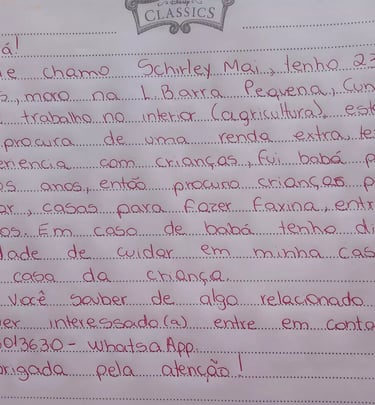 Disney
CLASSICS
á!
e chamo Schirley Mai, tenho 23
s, moro na L. Barra Pequena, Cun
trabalho no interior (agricultura), est
procura de uma renda extra, te
eriencia com crianças, fui babá p
os anos, então procuro crianças p
ar, casas para fazer faxina, entr
os. Em caso de babá tenho di
dade de cuidar em minha cas
casa da criança.
você souber de algo relacionado
er interessado(a) entre em conta
5013630 - WhatsaApp.
origada pela atenção!